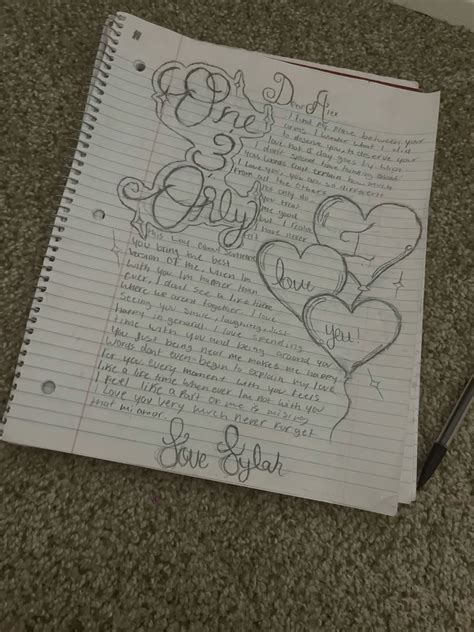 One
&
Only
Dear Alex
I find my place between your
arms. I wonder what I did
to deserve you
but not a day goes by when
I don't spend
words cant explain how much
I love you, you are so different
from all the others
Not only do
you treat
me good
but I
have never
You being the best
version of me, when I'm
with you I'm happier than
ever, I dont see a life
where we arent together. I love
seeing you smile, laughing, just
happy in general. I love spending
time with you and being around you
You just being near me makes me happy
Words dont even begin to explain my love
for you every moment with you feels
like a life time when ever Im not with you
I feel like a part of me is missing
I Love you very much never forget
that mi amor.
I
love
you!
Love Sylah